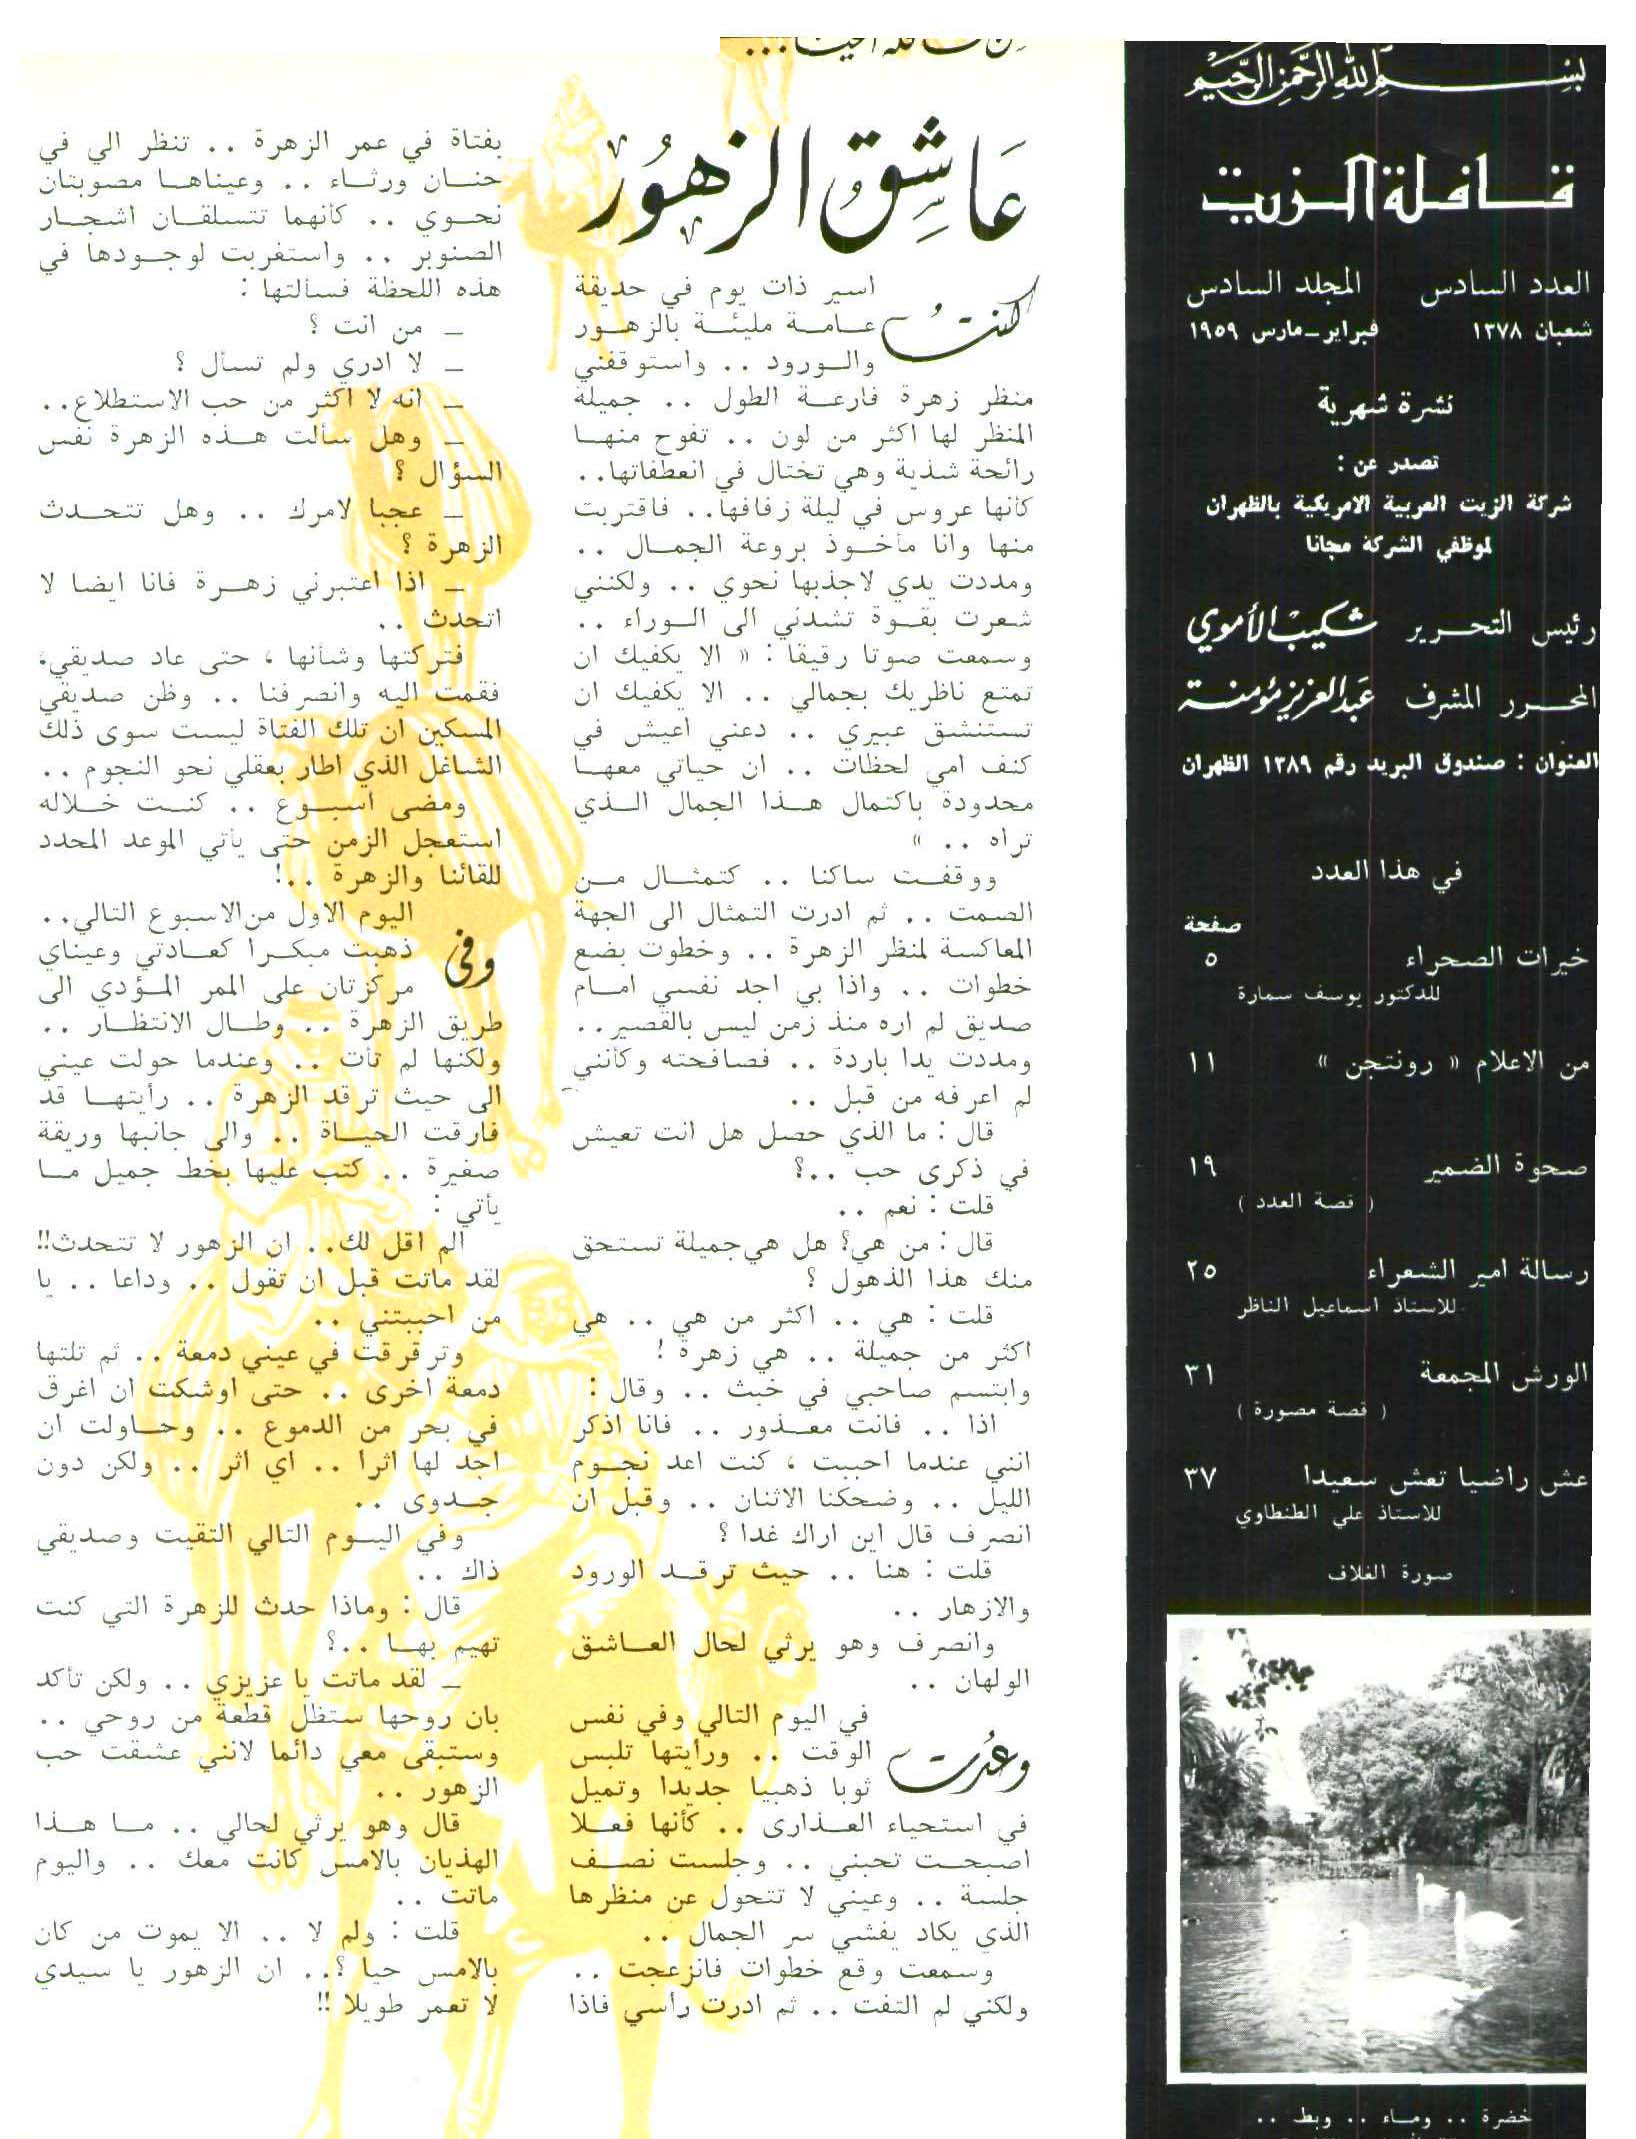 بسم الله الرحمن الرحيم
قافلة الزيت
العدد السادس المجلد السادس
شعبان ١٣٧٨ فبراير-مارس ١٩٥٩
نشرة شهرية
تصدر عن :
شركة الزيت العربية الامريكية بالظهران
لموظفي الشركة مجانا
رئيس التحرير شكيب الأموي
المحرر المشرف عبد العزيز مؤمنة
العنوان : صندوق البريد رقم ١٣٨٩ الظهران
في هذا العدد
صفحة
خيرات الصحراء ٥
للدكتور يوسف سمارة
من الاعلام « رونتجن » ١١
صحوة الضمير ١٩
( قصة العدد )
رسالة امير الشعراء ٢٥
للاستاذ اسماعيل الناظر
الورش المجمعة ٣١
( قصة مصورة )
عش راضيا تعش سعيدا ٣٧
للاستاذ علي الطنطاوي
صورة الغلاف
خضرة .. وماء .. وبط ..
عاشق الزهور
كنت اسير ذات يوم في حديقة
عامة مليئة بالزهور
والورود .. واستوقفني
منظر زهرة فارعة الطول .. جميلة
المنظر لها اكثر من لون .. تفوح منها
رائحة شذية وهي تختال في انعطفاتها..
كأنها عروس في ليلة زفافها.. فاقتربت
منها وانا مأخوذ بروعة الجمال ..
ومددت يدي لاجذبها نحوي .. ولكنني
شعرت بقوة تشدني الى الوراء ..
وسمعت صوتا رقيقا : « الا يكفيك ان
تمتع ناظريك بجمالي .. الا يكفيك ان
تستنشق عبيري .. دعني اعيش في
كنف امي لحظات .. ان حياتي معها
محدودة باكتمال هذا الجمال الذي
تراه .. »
ووقفت ساكنا .. كتمثال من
الصمت .. ثم ادرت التمثال الى الجهة
المعاكسة لمنظر الزهرة .. وخطوت بضع
خطوات .. واذا بي اجد نفسي امام
صديق لم اره منذ زمن ليس بالقصير..
ومددت يدا باردة .. فصافحته وكأنني
لم اعرفه من قبل ..
قال : ما الذي حصل هل انت تعيش
في ذكرى حب ..؟
قلت : نعم ..
قال : من هي؟ هل هي جميلة تستحق
منك هذا الذهول ؟
قلت : هي .. اكثر من هي .. هي
اكثر من جميلة .. هي زهرة !
وابتسم صاحبي في خبث .. وقال :
اذا .. فانت معذور .. فانا اذكر
انني عندما احببت ، كنت اعد نجوم
الليل .. وضحكنا الاثنان .. وقبل ان
انصرف قال اين اراك غدا ؟
قلت : هنا .. حيث ترقد الورود
والازهار ..
وانصرف وهو يرثي لحال العاشق
الولهان ..
وعدت في اليوم التالي وفي نفس
الوقت .. ورأيتها تلبس
ثوبا ذهبيا جديدا وتميل
في استحياء العذارى .. كأنها فعلا
اصبحت تحبني .. وجلست نصف
جلسة .. وعيني لا تتحول عن منظرها
الذي يكاد يفشي سر الجمال ..
وسمعت وقع خطوات فانزعجت ..
ولكني لم التفت .. ثم ادرت رأسي فاذا
بفتاة في عمر الزهرة .. تنظر الي في
حنان ورثاء .. وعيناها مصوبتان
نحوي .. كأنهما تتسلقان اشجار
الصنوبر .. واستغربت لوجودها في
هذه اللحظة فسألتها :
ـ من انت ؟
ـ لا ادري ولم تسأل ؟
ـ انه لا اكثر من حب الاستطلاع..
ـ وهل سألت هذه الزهرة نفس
السؤال ؟
ـ عجبا لامرك .. وهل تتحدث
الزهرة ؟
ـ اذا اعتبرني زهرة فانا ايضا لا
اتحدث ..
فتركتها وشأنها ، حتى عاد صديقي،
فقمت اليه وانصرفنا .. وظن صديقي
المسكين ان تلك الفتاة ليست سوى ذلك
الشاغل الذي اطار بعقلي نحو النجوم ..
ومضى اسبوع .. كنت خلاله
استعجل الزمن حتى يأتي الموعد المحدد
للقائنا والزهرة ..!
وفي اليوم الاول من الاسبوع التالي..
ذهبت مبكرا كعادتي وعيناي
مركزتان على الممر المؤدي الى
طريق الزهرة .. وطال الانتظار ..
ولكنها لم تأت .. وعندما حولت عيني
الى حيث ترقد الزهرة .. رأيتها قد
فارقت الحياة .. والى جانبها وريقة
صغيرة .. كتب عليها بخط جميل ما
يأتي :
الم اقل لك.. ان الزهور لا تتحدث!!
لقد ماتت قبل ان تقول .. وداعا .. يا
من احببتني ..
وترقرقت في عيني دمعة .. ثم تلتها
دمعة اخرى .. حتى اوشكت ان اغرق
في بحر من الدموع .. وحاولت ان
اجد لها اثرا .. اي اثر .. ولكن دون
جدوى ..
وفي اليوم التالي التقيت وصديقي
ذاك ..
قال : وماذا حدث للزهرة التي كنت
تهيم بها ..؟
ـ لقد ماتت يا عزيزي .. ولكن تأكد
بان روحها ستظل قطعة من روحي ..
وستبقى معي دائما لانني عشقت حب
الزهور ..
قال وهو يرثي لحالي .. ما هذا
الهذيان بالامس كانت معك .. واليوم
ماتت ..
قلت : ولم لا .. الا يموت من كان
بالامس حيا ؟.. ان الزهور يا سيدي
لا تعمر طويلا !!